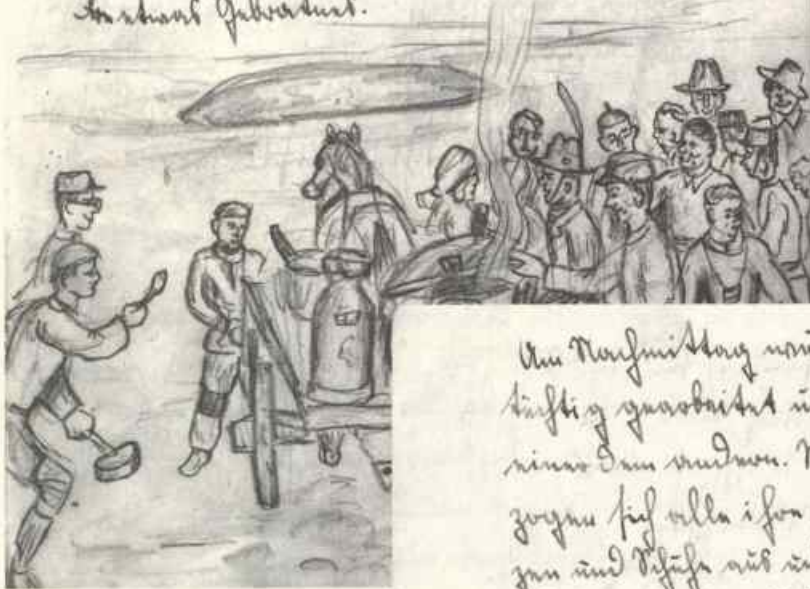 etwas Gebratnes.
Am Nachmittag wu
tüchtig gearbeitet u
einer dem andern.
zogen sich alle ihre
zen und Schuhe aus un